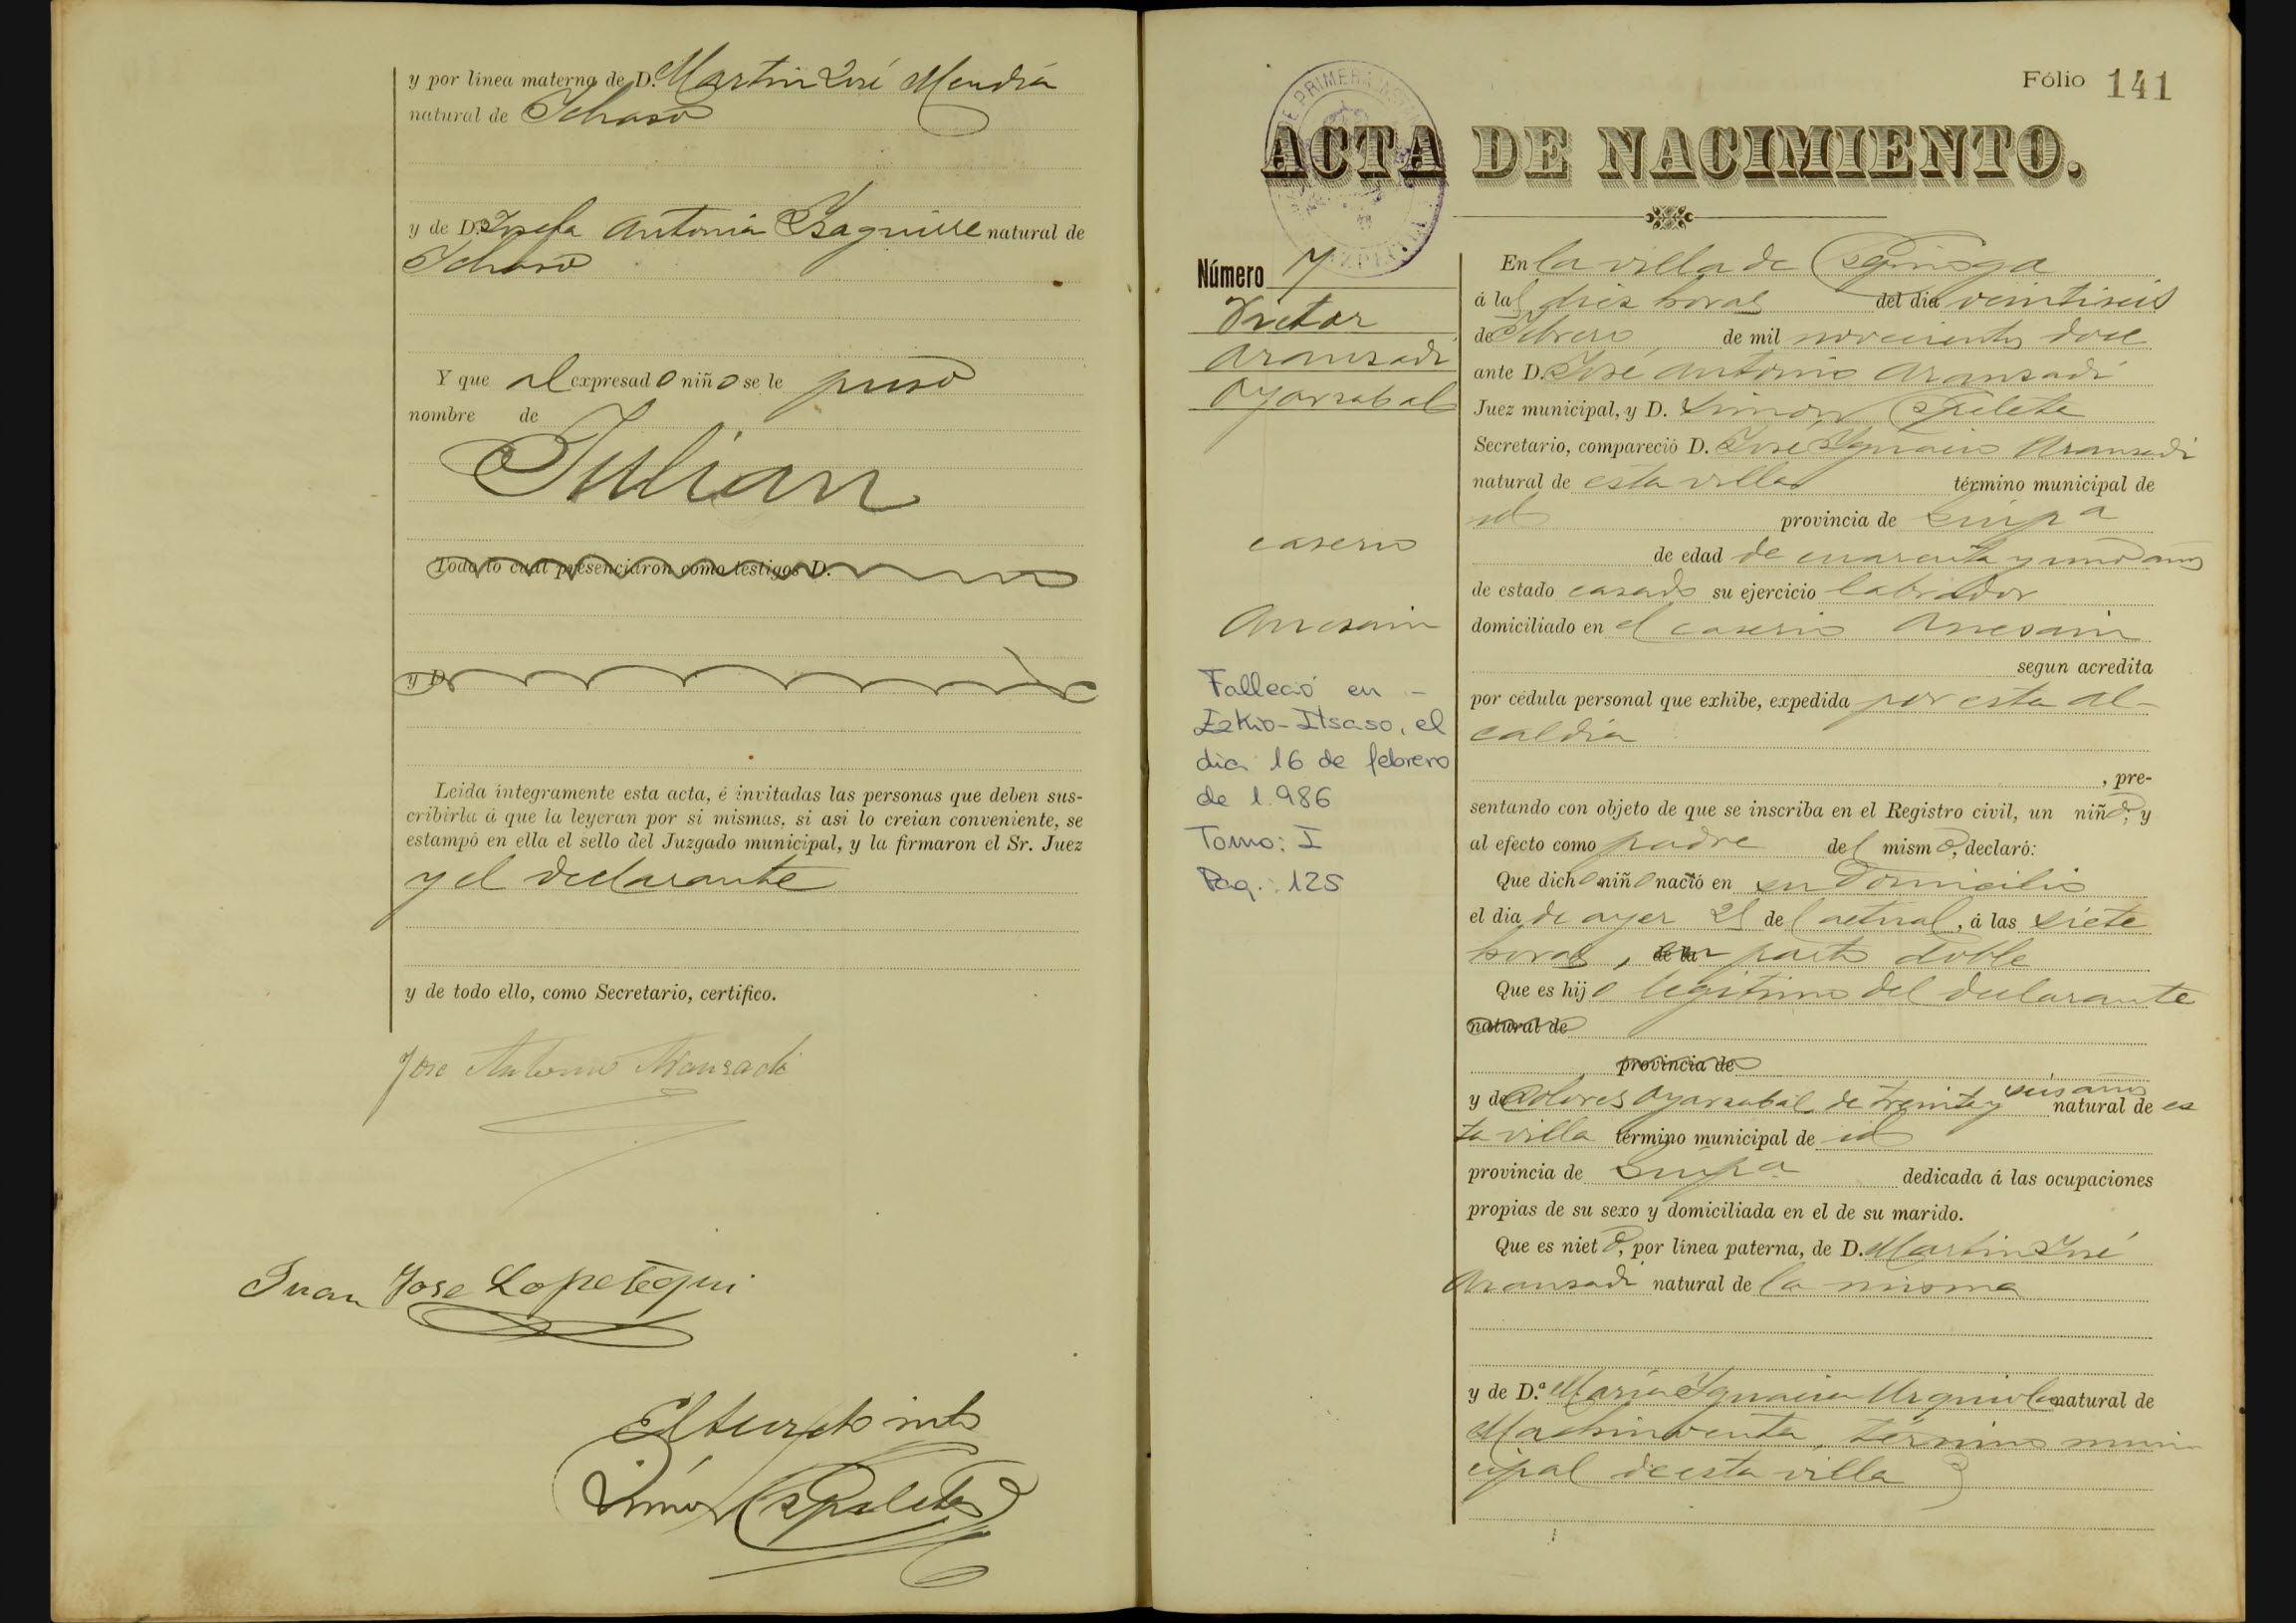 y por línea materna de D. Martin José Mendia
natural de Ichaso
y de D.ª Josefa Antonia Ysaguirre natural de
Ichaso
Y que al expresado niño se le puso
nombre de
Julian
Todo lo cual presenciaron como testigos D.
y D.
Leida íntegramente esta acta, é invitadas las personas que deben sus-
cribirla á que la leyeran por si mismas, si asi lo creian conveniente, se
estampó en ella el sello del Juzgado municipal, y la firmaron el Sr. Juez
y el declarante
y de todo ello, como Secretario, certifico.
Jose Antonio Aranzadi
Juan Jose Lopetegui
El Secreto into
Simón Espeleta
Fólio 141
ACTA DE NACIMIENTO.
Número 7
Victor
Aranzadi
Oyarzabal
caserio
Falleció en -
Ezkio-Itsaso, el
dia 16 de febrero
de 1.986
Tomo: I
Pag.: 125
En la villa de Ezquioga
á las diez horas del dia veintiseis
de Febrero, de mil novecientos doce
ante D. José Antonio Aranzadi
Juez municipal, y D. Simón Espeleta
Secretario, compareció D. José Ygnacio Aranzadi
natural de esta villa término municipal de
id provincia de Guipª
de edad de cuarenta y uno años
de estado casado su ejercicio labrador
domiciliado en el caserio
segun acredita
por cédula personal que exhibe, expedida por esta Al-
caldia
, pre-
sentando con objeto de que se inscriba en el Registro civil, un niño, y
al efecto como padre del mismo, declaró:
Que dicho niño nació en su domicilio
el dia de ayer 25 del actual, á las siete
horas, de la parto doble
Que es hijo legitimo del declarante
natural de
provincia de
y de Dolores Oyarzabal de treinta y seis años natural de es
ta villa término municipal de id
provincia de Guipª dedicada á las ocupaciones
propias de su sexo y domiciliada en el de su marido.
Que es nieto, por línea paterna, de D. Martin José
Aranzadi natural de la misma
y de D.ª Maria Ygnacia Urquiola natural de
Machinventa, término muni
cipal de esta villa